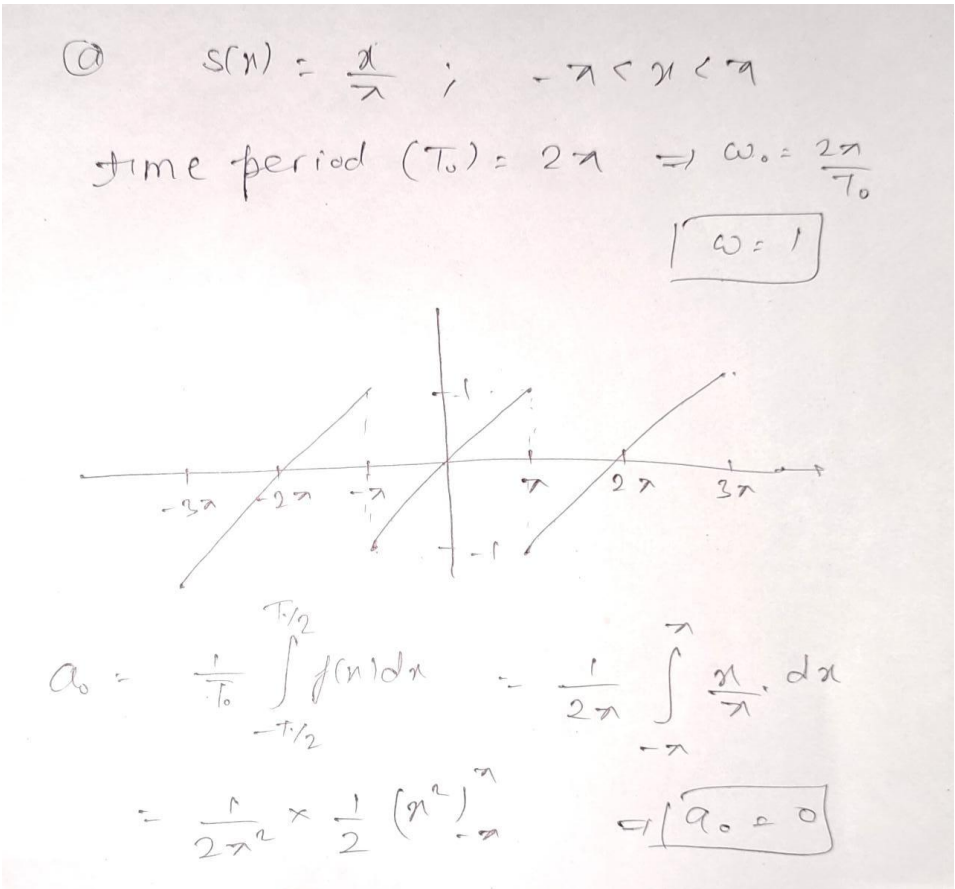 ⓐ s(x) = x/π ; -π < x < π
time period (T₀) = 2π ⇒ ω₀ = 2π/T₀
ω = 1
1
-3π -2π -π π 2π 3π
-1
a₀ = 1/T₀ ∫_{-T₀/2}^{T₀/2} f(x)dx = 1/2π ∫_{-π}^{π} x/π . dx
= 1/2π² × 1/2 (x²)_{-π}^{π} ⇒ a₀ = 0